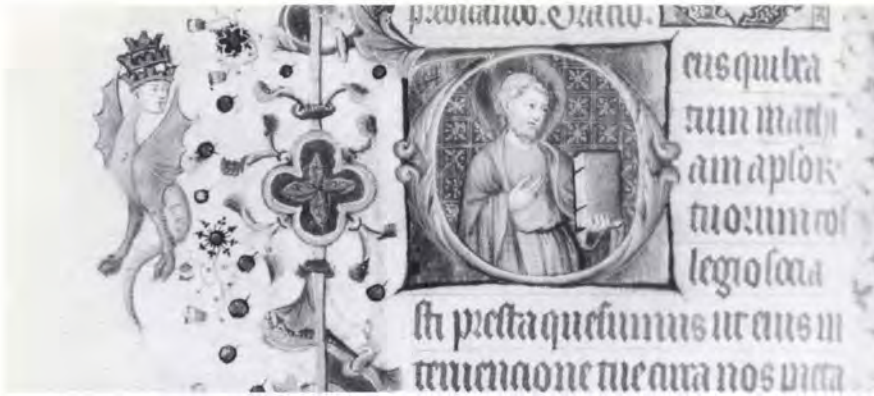 predicando. Oratio.
Deus qui bea
tum mathi
am aplor
tuorum col
legio socia
sti presta quesumus ut eius in
tervencione tue circa nos pieta